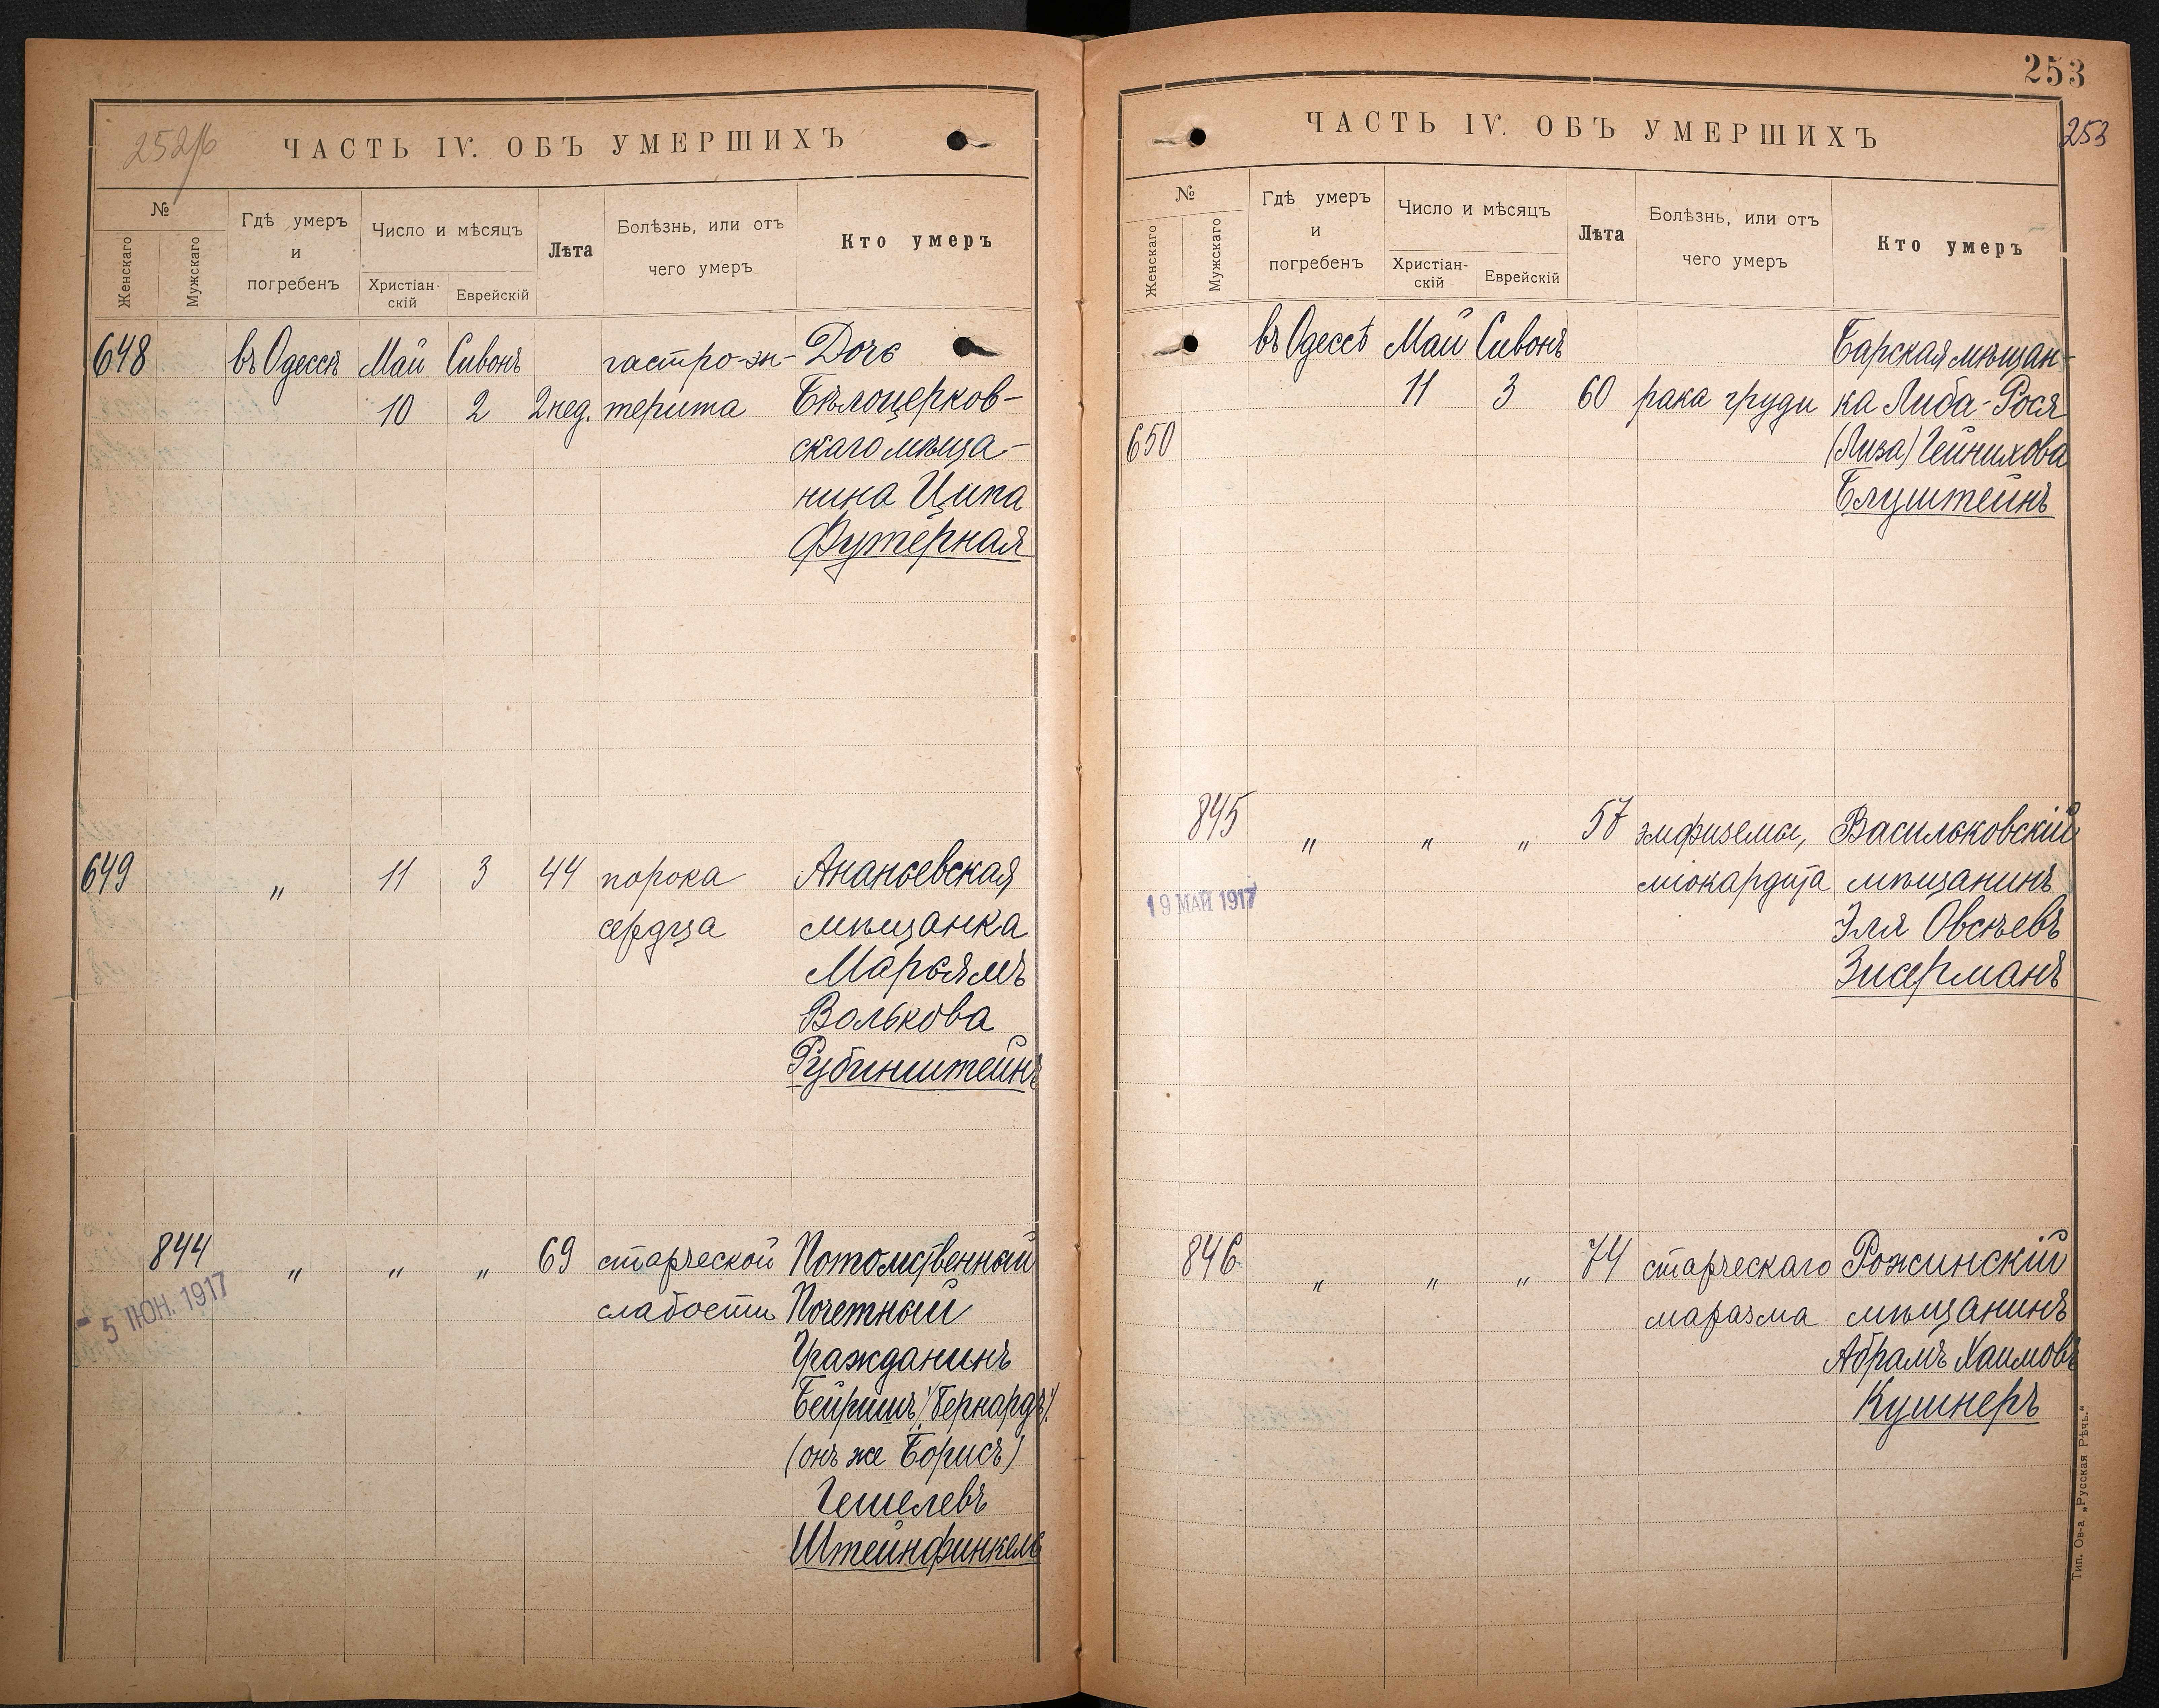 252/б
ЧАСТЬ IV. ОБЪ УМЕРШИХЪ
№
Женскаго
Мужскаго
Гдѣ умеръ
и
погребенъ
Число и мѣсяцъ
Христіан-
скій
Еврейскій
Лѣта
Болѣзнь, или отъ
чего умеръ
Кто умеръ
648 въ Одессѣ Май Сивонъ гастро-эн- Дочь
10 2 2 нед. терита Бѣлоцерков-
скаго мѣща-
нина Ципа
Футерная
649 „ 11 3 44 порока Ананьевская
сердца мѣщанка
Марьямъ
Волькова
Рубинштейнъ
844 „ „ „ 69 старческой Потомственный
- 5 ІЮН. 1917
слабости Почетный
Гражданинъ
Бейришъ (Бернардъ)
(онъ же Борисъ)
Гешелевъ
Штейнфинкель
253
253
ЧАСТЬ IV. ОБЪ УМЕРШИХЪ
№
Женскаго
Мужскаго
Гдѣ умеръ
и
погребенъ
Число и мѣсяцъ
Христіан-
скій
Еврейскій
Лѣта
Болѣзнь, или отъ
чего умеръ
Кто умеръ
въ Одессѣ Май Сивонъ Барская мѣщан-
11 3 60 рака груди ка Либа-Рося
650 (Лиза) Гейнихова
Блуштейнъ
845 „ „ „ 57 эмфиземы, Васильковскій
19 МАЙ 1917
міокардита мѣщанинъ
Эля Овсѣевъ
Зисерманъ
846 „ „ „ 74 старческаго Рожинскій
маразма мѣщанинъ
Абрамъ Хаимовъ
Кушнеръ
Тип. Ов-а „Русская Рѣчь.“